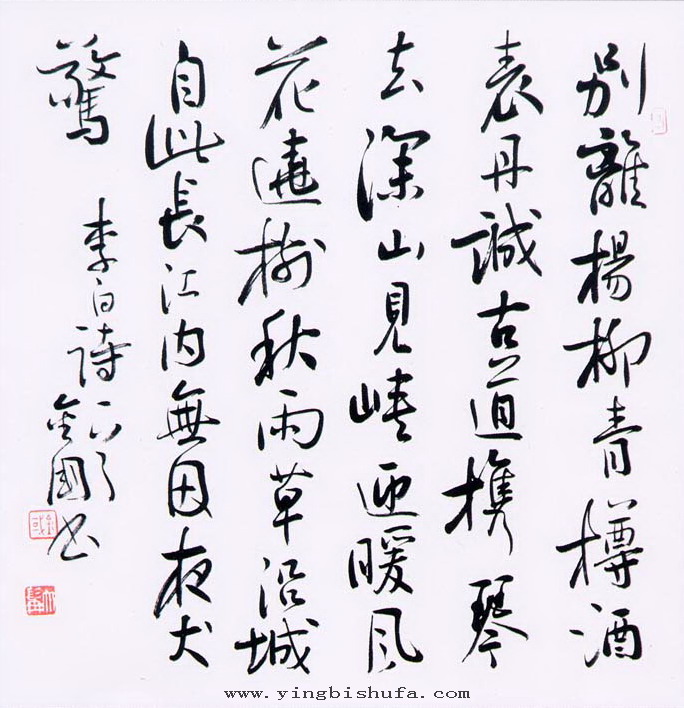 別離楊柳青樽酒
表丹誠古道携琴
去深山見峽迎暖風
花遶樹秋雨草沿城
自此長江内無因夜犬
驚
李白詩
國书
www.yingbishufa.com